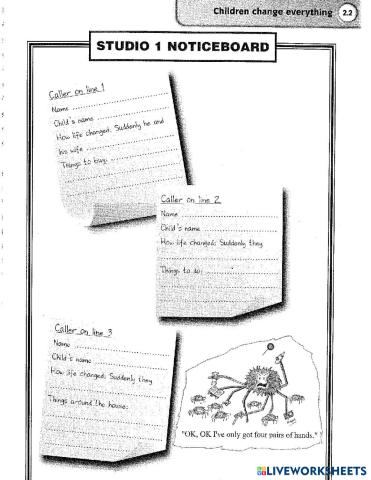 Children change everything 2.2
STUDIO 1 NOTICEBOARD
Caller on line 1
Name
Child's name
How life changed: Suddenly he and
his wife
Things to buy:
Caller on line 2
Name
Child's name
How life changed: Suddenly they
Things to do:
Caller on line 3
Name
Child's name
How life changed: Suddenly they
Things around the house:
"OK, OK I've only got four pairs of hands."
LIVEWORKSHEETS